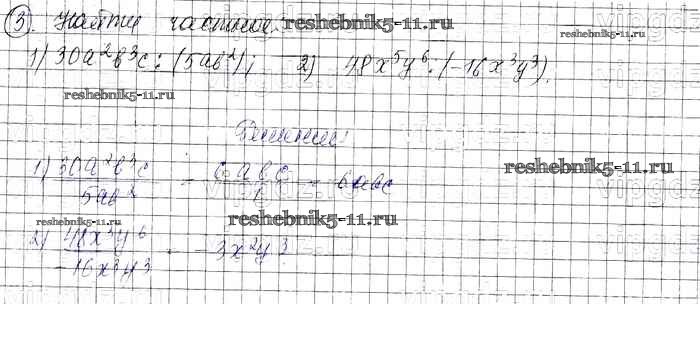 ③. Найти частные. reshebnik5-11.ru
reshebnik5-11.ru
1) 30a²b³c : (5ab²); 2) 48x⁵y⁶ : (−16x³y³).
reshebnik5-11.ru
reshebnik5-11.ru
Решение:
1) 30a²b³c / 5ab² = 6abc / 1 = 6abc
reshebnik5-11.ru
reshebnik5-11.ru
reshebnik5-11.ru
2) 48x⁵y⁶ / −16x³y³ = −3x²y³